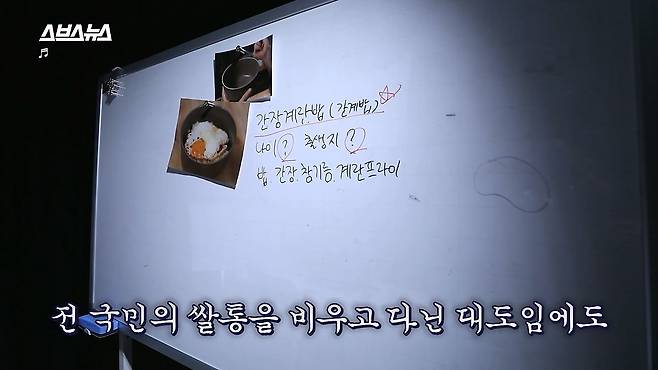 스브스뉴스
간장계란밥 (간계밥)
나이 ? 출생지 ?
밥, 간장, 참기름, 계란프라이
전 국민의 쌀통을 비우고 다닌 대도임에도